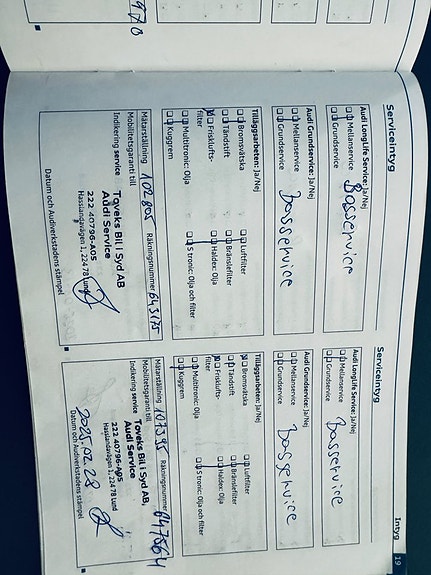 Serviceintyg
Audi LongLife Service: Ja/Nej
Mellanservice
Grundservice
Basservice
Audi Grundservice: Ja/Nej
Mellanservice
Grundservice
Basservice
Tilläggsarbeten: Ja/Nej
Bromsvätska
Luftfilter
Tändstift
Bränslefilter
Friskluftsfilter
Haldex: Olja
Multitronic: Olja
S tronic: Olja och filter
Kuggrem
Mätarställning 102805 Räkningsnummer 643175
Mobilitetsgaranti till
Indikering service
Toveks Bil i Syd AB
Audi Service
222 40796-A05
Hasslandavägen 1, 224 78 Lund
Datum och Audiverkstadens stämpel
Intyg
19
Serviceintyg
Audi LongLife Service: Ja/Nej
Mellanservice
Grundservice
Basservice
Audi Grundservice: Ja/Nej
Mellanservice
Grundservice
Basservice
Tilläggsarbeten: Ja/Nej
Bromsvätska
Luftfilter
Tändstift
Bränslefilter
Friskluftsfilter
Haldex: Olja
Multitronic: Olja
S tronic: Olja och filter
Kuggrem
Mätarställning 107295 Räkningsnummer 647564
Mobilitetsgaranti till
Indikering service
Toveks Bil i Syd AB,
Audi Service
222 40796-A05
Hasslandavägen 1, 224 78 Lund
Datum och Audiverkstadens stämpel